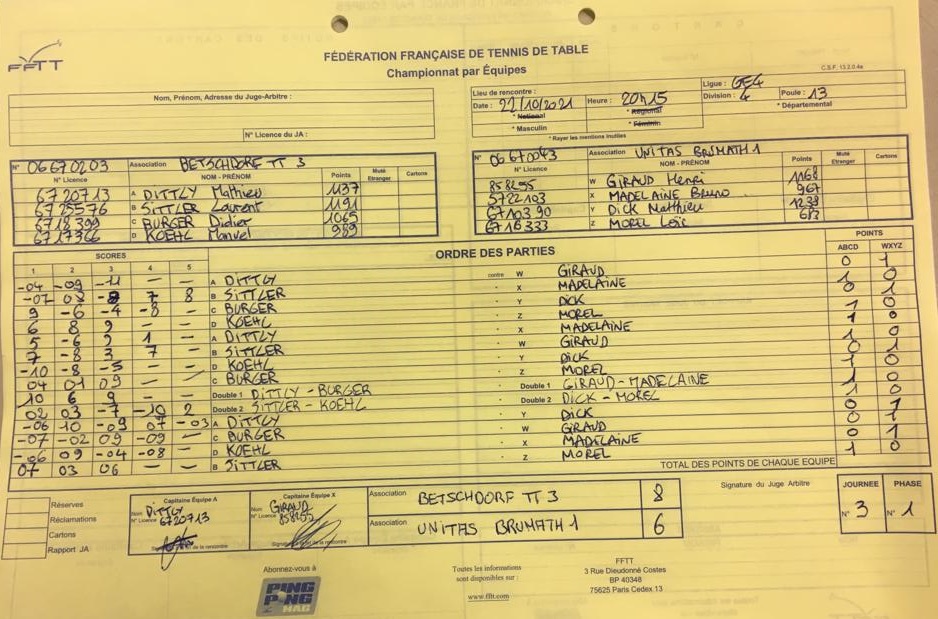 FFTT
FÉDÉRATION FRANÇAISE DE TENNIS DE TABLE
Championnat par Équipes
C.S.F. 13.2.0.4a
Nom, Prénom, Adresse du Juge-Arbitre :
N° Licence du JA :
Lieu de rencontre :
Ligue : GE4
Date : 22/10/2021 Heure : 20h15 Division : 4 Poule : 13
* National * Régional * Départemental
* Masculin * Féminin
* Rayer les mentions inutiles
N° 06670203 Association BETSCHDORF TT 3
N° Licence NOM - PRÉNOM Points Muté Etranger Cartons
6720713 A DITTLY Mathieu 1137
B SITTLER Laurent 1191
6718399 C BURGER Didier 1065
6717366 D KOEHL Manuel 989
N° 06670043 Association UNITAS BRUMATH 1
N° Licence NOM - PRÉNOM Points Muté Etranger Cartons
858255 W GIRAUD Henri 1168
5722103 X MADELAINE Bruno 967
6710390 Y DICK Matthieu 1238
6716333 Z MOREL Loïc
SCORES ORDRE DES PARTIES POINTS
1 2 3 4 5 ABCD WXYZ
-04 -09 -11 - - A DITTLY contre W GIRAUD 0 1
-07 08 -8 7 8 B SITTLER X MADELAINE 1 0
9 -6 -4 -8 - C BURGER Y DICK 0 1
6 8 9 - - D KOEHL Z MOREL 1 0
5 -6 9 1 - A DITTLY X MADELAINE 1 0
7 -8 3 7 - B SITTLER W GIRAUD 1 0
-10 -8 -5 - - D KOEHL Y DICK 0 1
04 01 09 - - C BURGER Z MOREL 1 0
10 6 9 - - Double 1 DITTLY - BURGER Double 1 GIRAUD - MADELAINE 1 0
02 03 -7 -10 2 Double 2 SITTLER - KOEHL Double 2 DICK - MOREL 1 0
-06 10 -09 07 -03 A DITTLY Y DICK 0 1
-07 -02 09 -09 - C BURGER W GIRAUD 0 1
-06 09 -04 -08 - D KOEHL X MADELAINE 0 1
07 03 06 - - B SITTLER Z MOREL 1 0
TOTAL DES POINTS DE CHAQUE EQUIPE
Réserves
Réclamations
Cartons
Rapport JA
Capitaine Équipe A
Nom DITTLY
N° Licence 6720713
Signature à la fin de la rencontre
Capitaine Équipe X
Nom GIRAUD
N° Licence 858255
Signature à la fin de la rencontre
Association BETSCHDORF TT 3 8
Association UNITAS BRUMATH 1 6
Signature du Juge Arbitre
JOURNEE PHASE
N° 3 N° 1
Abonnez-vous à
PING PONG MAG
Toutes les informations
sont disponibles sur :
www.fftt.com
FFTT
3 Rue Dieudonné Costes
BP 40348
75625 Paris Cedex 13